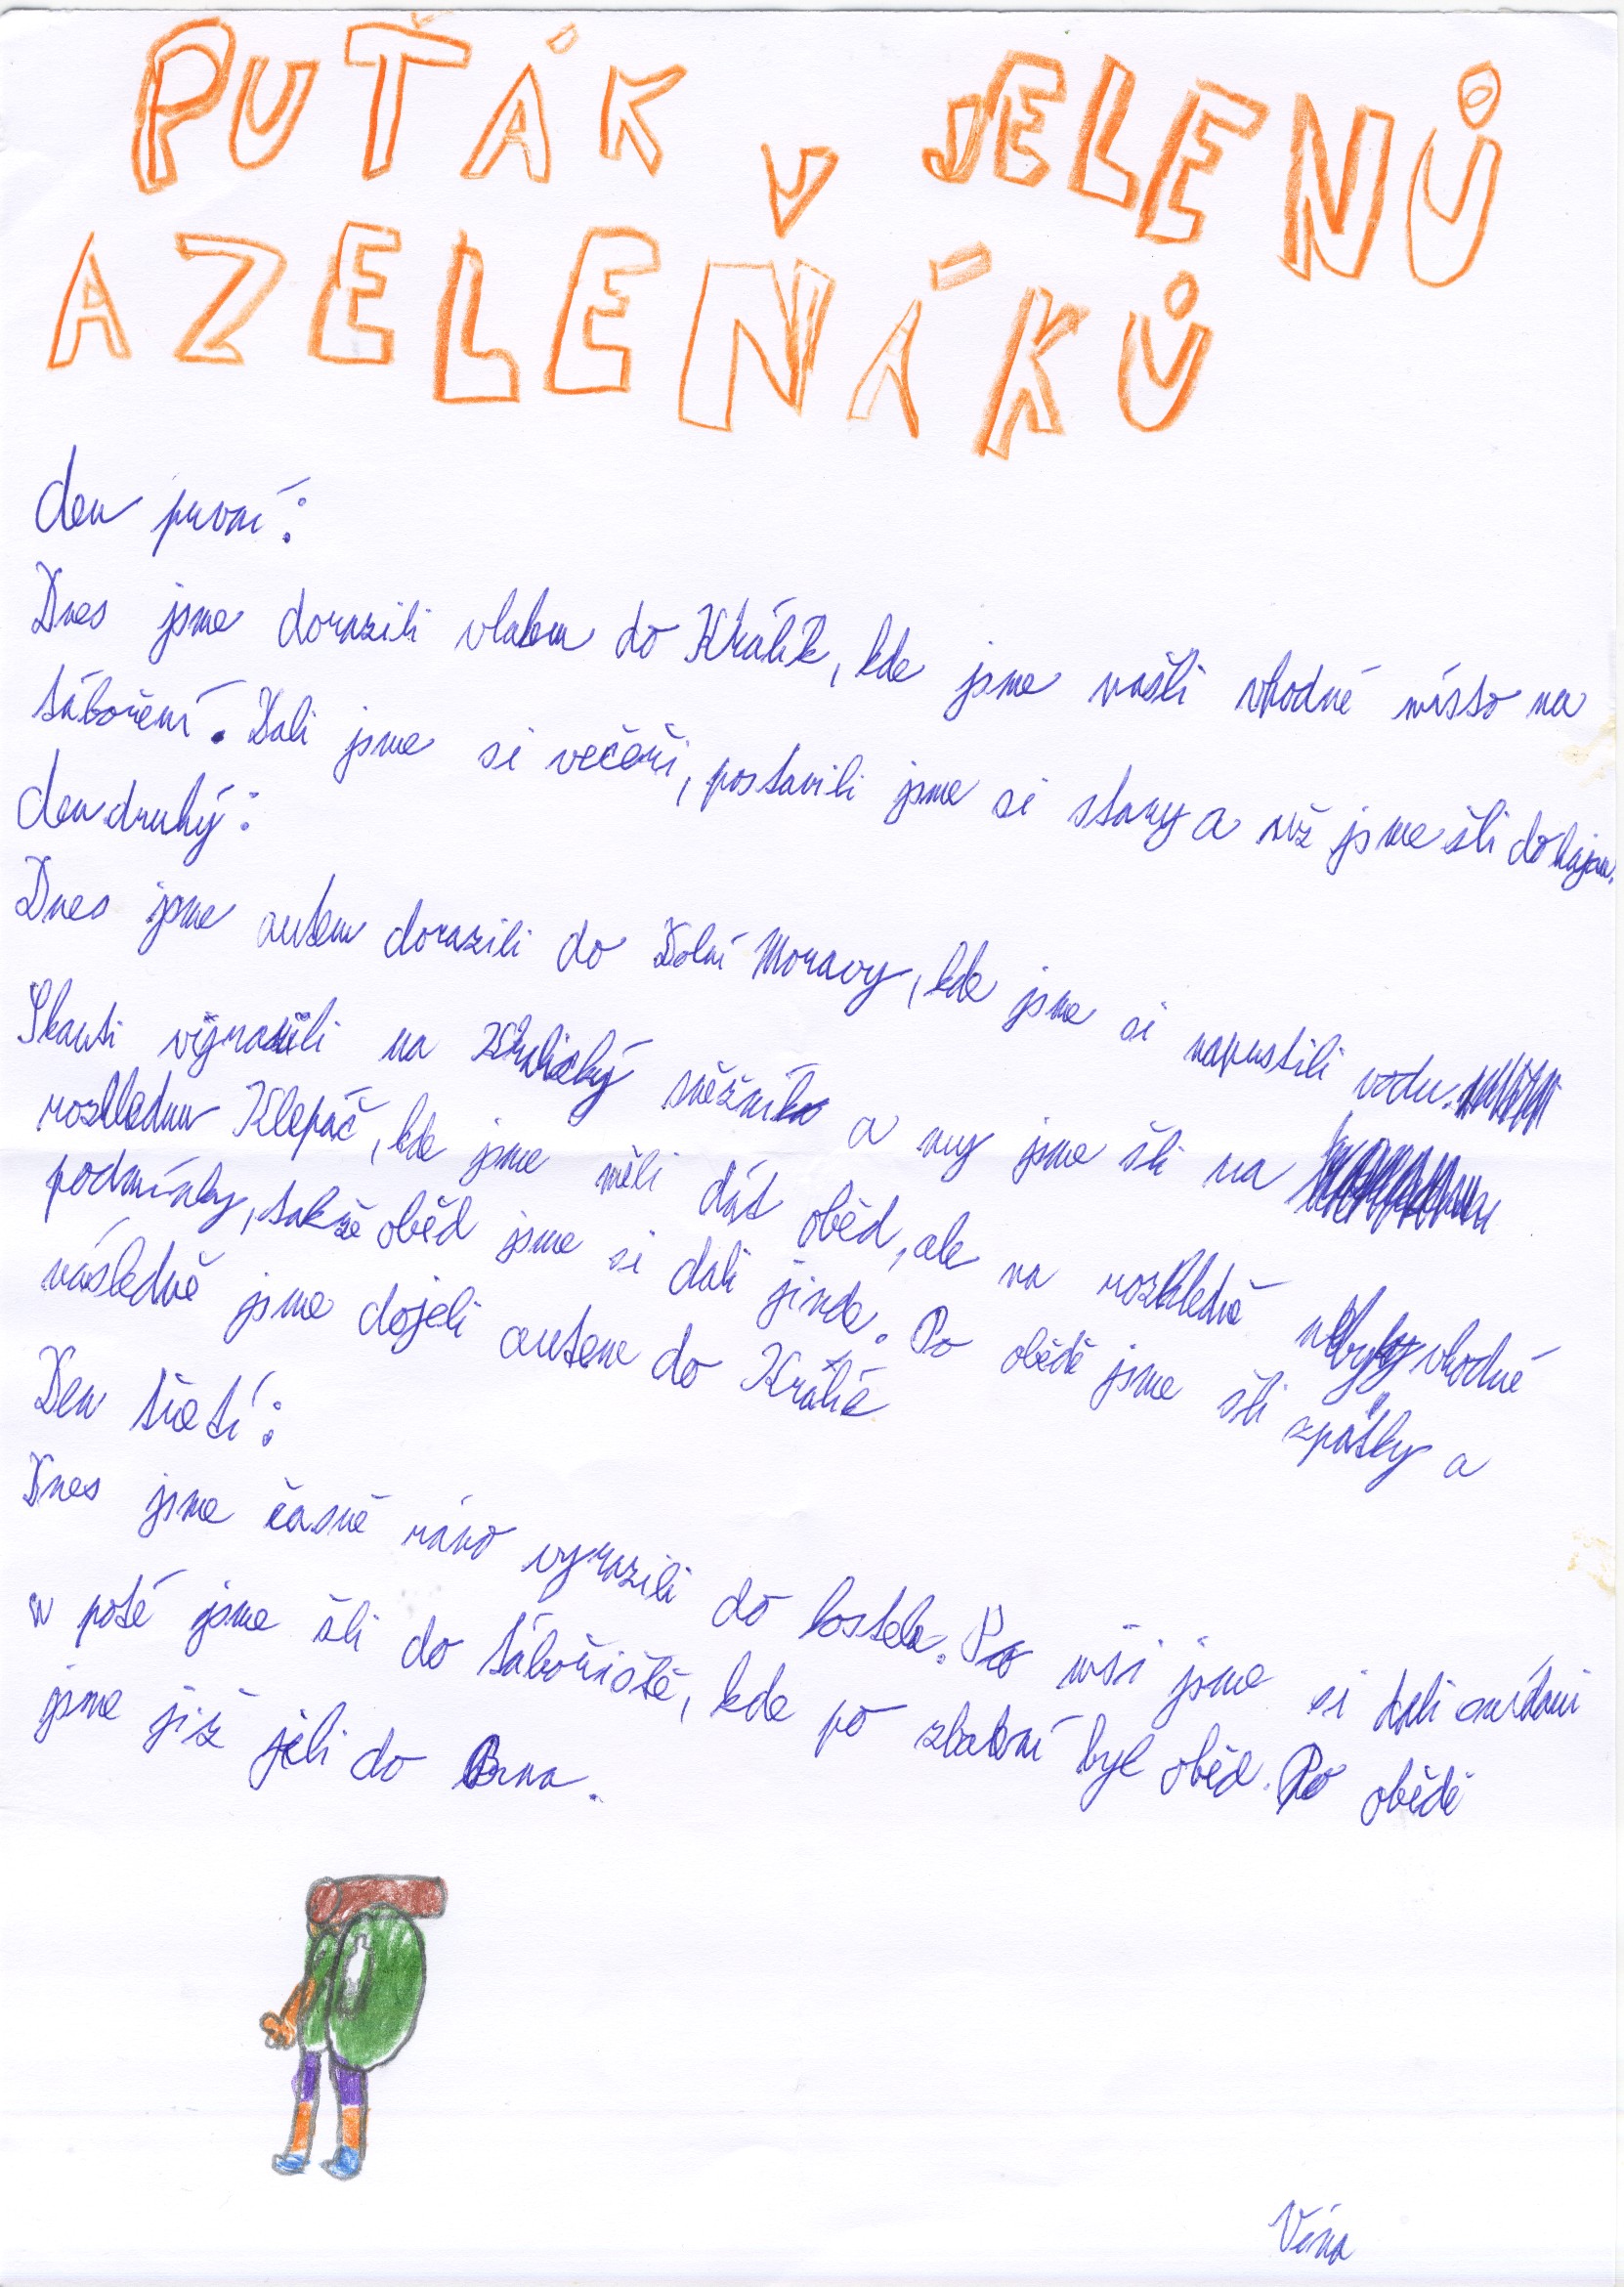 PUŤÁK V JELENŮ
A ZELEŇÁKŮ
den první:
Dnes jsme dorazili vlakem do Králík, kde jsme našli vhodné místo na
táboření. Dali jsme si večeři, postavili jsme si stany a už jsme šli do hajan.
den druhý:
Dnes jsme autem dorazili do Dolní Moravy, kde jsme si napustili vodu.
Skauti vyrazili na Králický sněžník a my jsme šli na
rozhlednu Klepáč, kde jsme měli dát oběd, ale na rozhledně nebyly vhodné
podmínky, takže oběd jsme si dali jinde. Po obědě jsme šli zpátky a
následně jsme dojeli autem do Králík
Den třetí:
Dnes jsme časně ráno vyrazili do kostela. Po mši jsme si dali snídani
a poté jsme šli do tábořiště, kde po zbalení byl oběd. Po obědě
jsme již jeli do Brna.
Věna